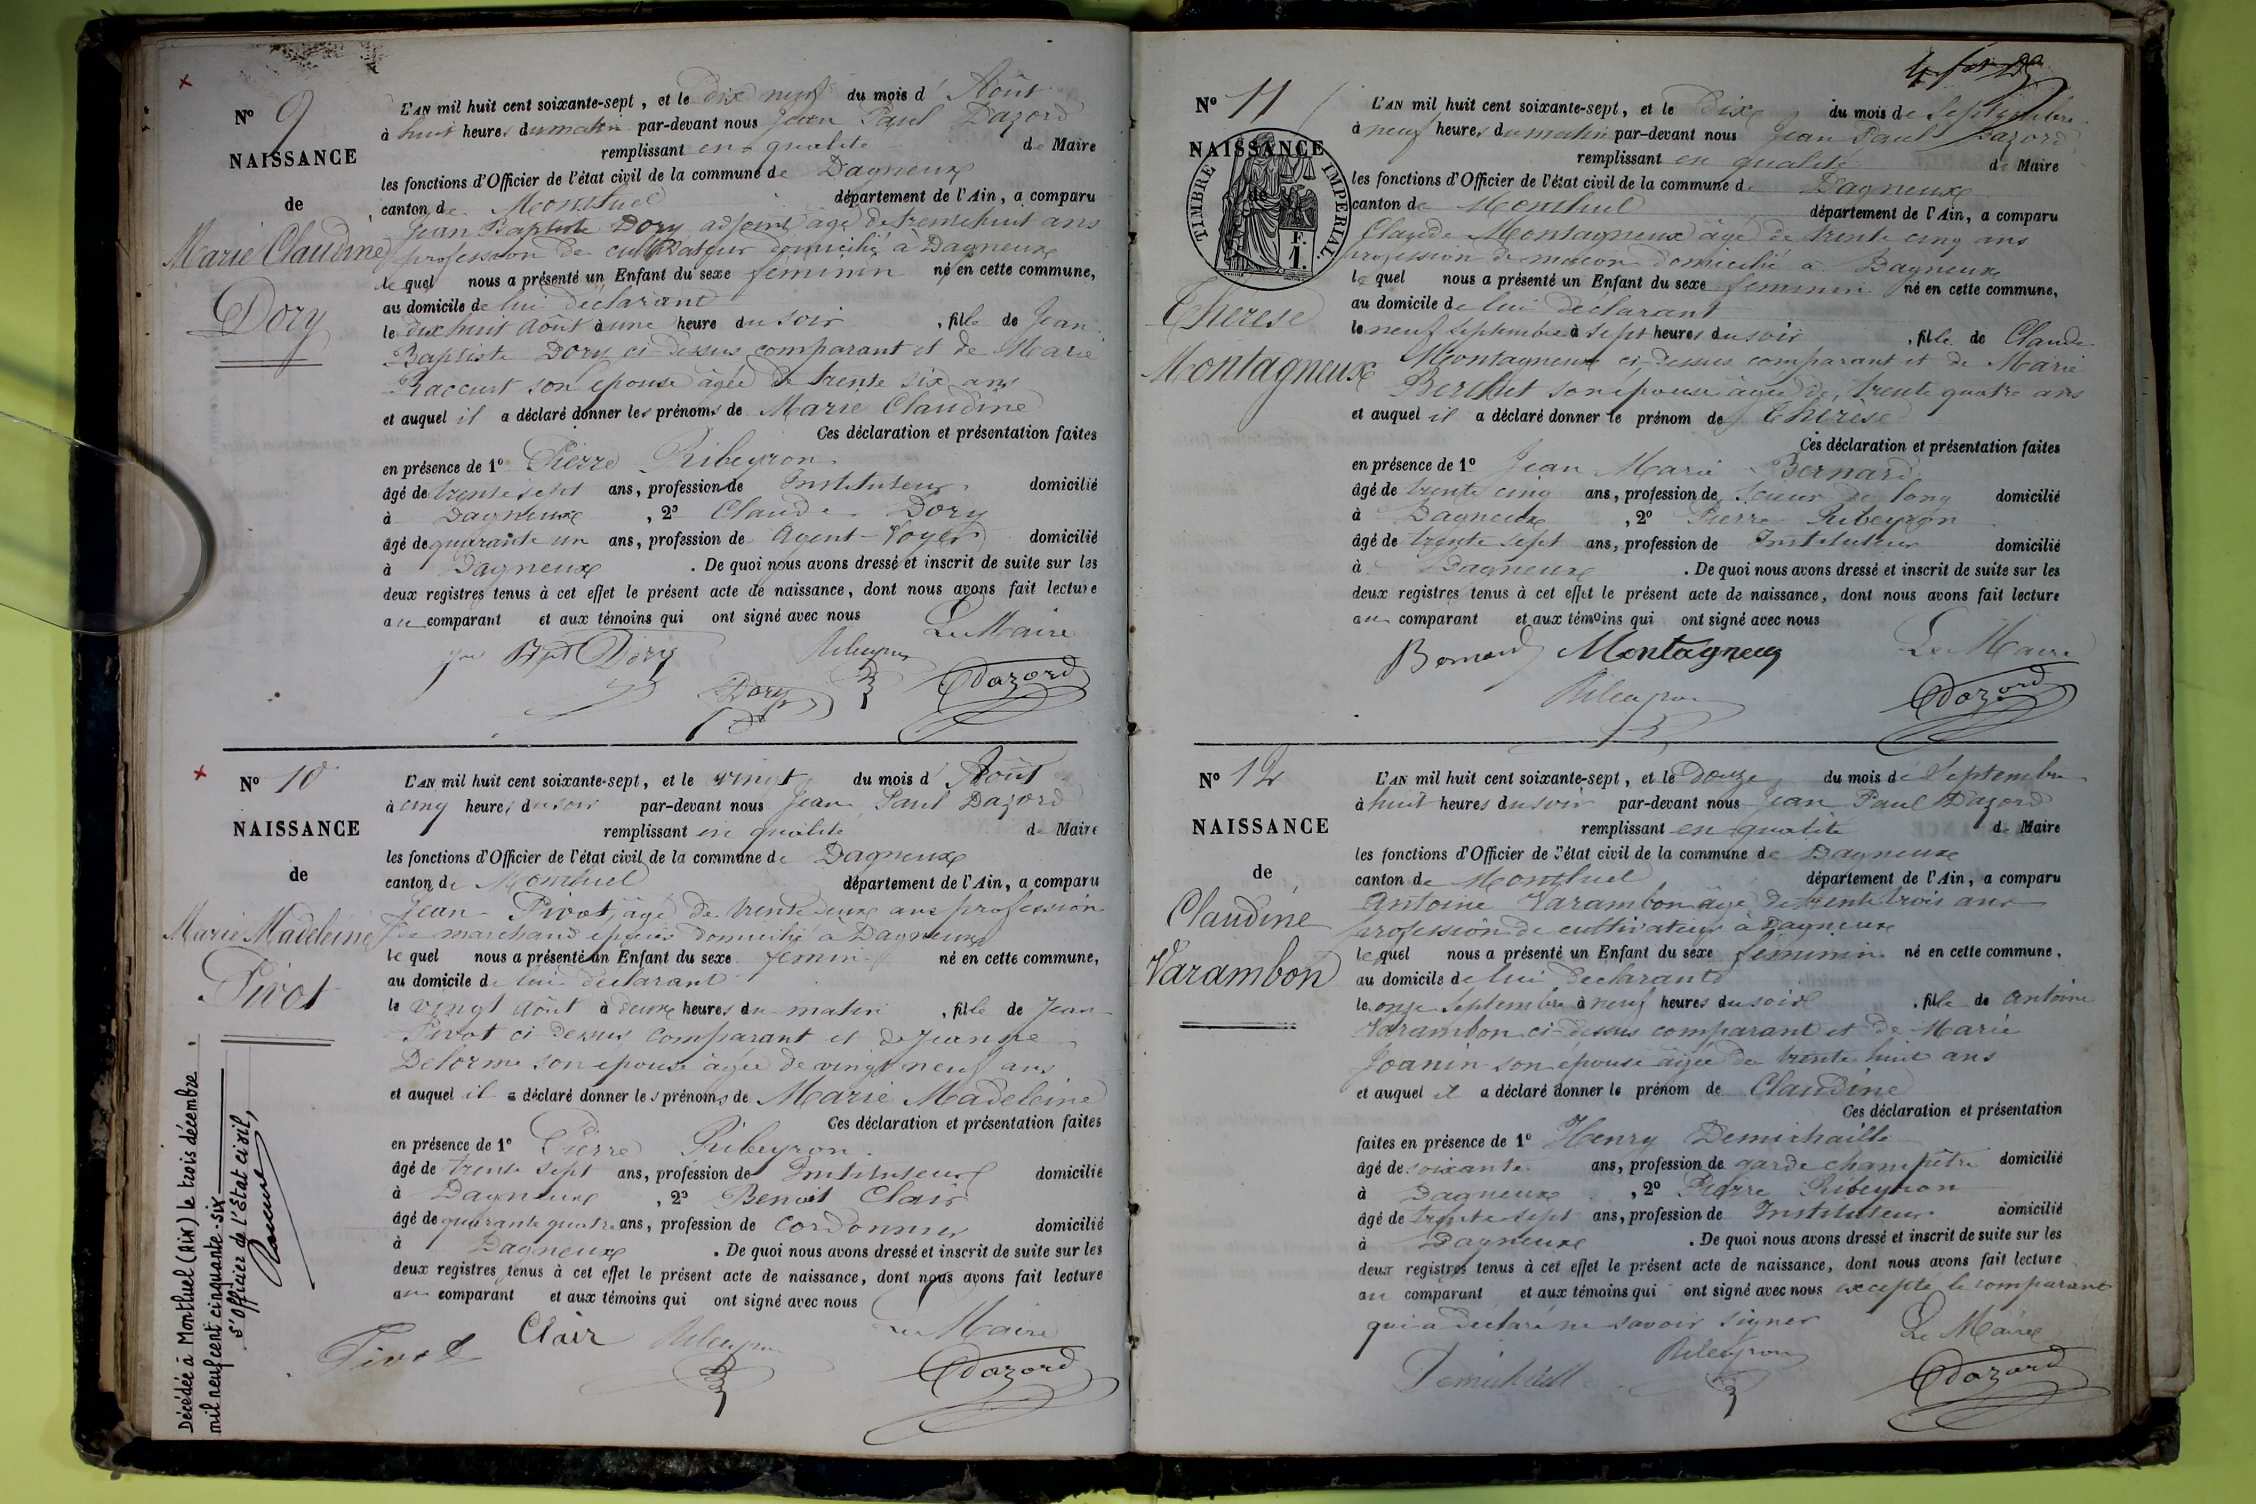 N° 9
NAISSANCE
de
Marie Claudine
Dory
L'AN mil huit cent soixante-sept, et le dix neuf du mois d'Août
à huit heures du matin par-devant nous Jean Paul Dazord
remplissant en qualité de Maire
les fonctions d'Officier de l'état civil de la commune de Dagneux
canton de Montluel département de l'Ain, a comparu
Jean Baptiste Dory adjoint âgé de trente huit ans
profession de cultivateur domicilié à Dagneux
lequel nous a présenté un Enfant du sexe féminin né en cette commune,
au domicile de lui déclarant
le dix huit Août à une heure du soir, fille de Jean
Baptiste Dory ci-dessus comparant et de Marie
Raccurt son épouse âgée de trente six ans
et auquel il a déclaré donner les prénoms de Marie Claudine
Ces déclaration et présentation faites
en présence de 1° Pierre Ribeyron
âgé de trente sept ans, profession de Instituteur domicilié
à Dagneux, 2° Claude Dory
âgé de quarante un ans, profession de Agent-Voyer domicilié
à Dagneux. De quoi nous avons dressé et inscrit de suite sur les
deux registres tenus à cet effet le présent acte de naissance, dont nous avons fait lecture
au comparant et aux témoins qui ont signé avec nous
Le Maire
Jean Bpt Dory Ribeyron
Dory Dazord
N° 10
NAISSANCE
de
Marie Madeleine
Pivot
Décédée à Montluel (Ain) le trois décembre
mil neuf cent cinquante-six
L'officier de l'état civil,
L'AN mil huit cent soixante-sept, et le vingt du mois d'Août
à cinq heures du soir par-devant nous Jean Paul Dazord
remplissant en qualité de Maire
les fonctions d'Officier de l'état civil de la commune de Dagneux
canton de Montluel département de l'Ain, a comparu
Jean Pivot, âgé de trente deux ans profession
de marchand épicier domicilié à Dagneux
lequel nous a présenté un Enfant du sexe femin né en cette commune,
au domicile de lui déclarant
le vingt Août à deux heures du matin, fille de Jean
Pivot ci-dessus comparant et de Jeanne
Delorme son épouse âgée de vingt neuf ans
et auquel il a déclaré donner les prénoms de Marie Madeleine
Ces déclaration et présentation faites
en présence de 1° Pierre Ribeyron
âgé de trente sept ans, profession de Instituteur domicilié
à Dagneux, 2° Benoit Clair
âgé de quarante quatre ans, profession de Cordonnier domicilié
à Dagneux. De quoi nous avons dressé et inscrit de suite sur les
deux registres tenus à cet effet le présent acte de naissance, dont nous avons fait lecture
au comparant et aux témoins qui ont signé avec nous
Le Maire
Pivot Clair Ribeyron Dazord
N° 11
NAISSANCE
de
TIMBRE IMPERIAL
F.
1.
Thérèse
Montagneux
L'AN mil huit cent soixante-sept, et le Dix du mois de Septembre
à neuf heures du matin par-devant nous Jean Paul Dazord
remplissant en qualité de Maire
les fonctions d'Officier de l'état civil de la commune de Dagneux
canton de Montluel département de l'Ain, a comparu
Claude Montagneux âgé de trente cinq ans
profession de maçon domicilié à Dagneux
lequel nous a présenté un Enfant du sexe féminin né en cette commune,
au domicile de lui déclarant
le neuf Septembre à sept heures du soir, fille de Claude
Montagneux ci-dessus comparant et de Marie
Berthet son épouse âgée de trente quatre ans
et auquel il a déclaré donner le prénom de Thérèse
Ces déclaration et présentation faites
en présence de 1° Jean Marie Bernard
âgé de trente cinq ans, profession de scieur de long domicilié
à Dagneux, 2° Pierre Ribeyron
âgé de trente sept ans, profession de Instituteur domicilié
à Dagneux. De quoi nous avons dressé et inscrit de suite sur les
deux registres tenus à cet effet le présent acte de naissance, dont nous avons fait lecture
au comparant et aux témoins qui ont signé avec nous
Bernard Montagneux Le Maire
Ribeyron Dazord
N° 12
NAISSANCE
de
Claudine
Varambon
L'AN mil huit cent soixante-sept, et le Douze du mois de Septembre
à huit heures du soir par-devant nous Jean Paul Dazord
remplissant en qualité de Maire
les fonctions d'Officier de l'état civil de la commune de Dagneux
canton de Montluel département de l'Ain, a comparu
Antoine Varambon âgé de trente trois ans
profession de cultivateur à Dagneux
lequel nous a présenté un Enfant du sexe féminin né en cette commune.
au domicile de lui déclarant
le onze Septembre à neuf heures du soir, fille de Antoine
Varambon ci-dessus comparant et de Marie
Joanin son épouse âgée de trente huit ans
et auquel il a déclaré donner le prénom de Claudine
Ces déclaration et présentation
faites en présence de 1° Henry Demichaille
âgé de soixante ans, profession de garde champêtre domicilié
à Dagneux, 2° Pierre Ribeyron
âgé de trente sept ans, profession de Instituteur domicilié
à Dagneux. De quoi nous avons dressé et inscrit de suite sur les
deux registres tenus à cet effet le présent acte de naissance, dont nous avons fait lecture
au comparant et aux témoins qui ont signé avec nous excepté le comparant
qui a déclaré ne savoir signer
Le Maire
Ribeyron
Dazord